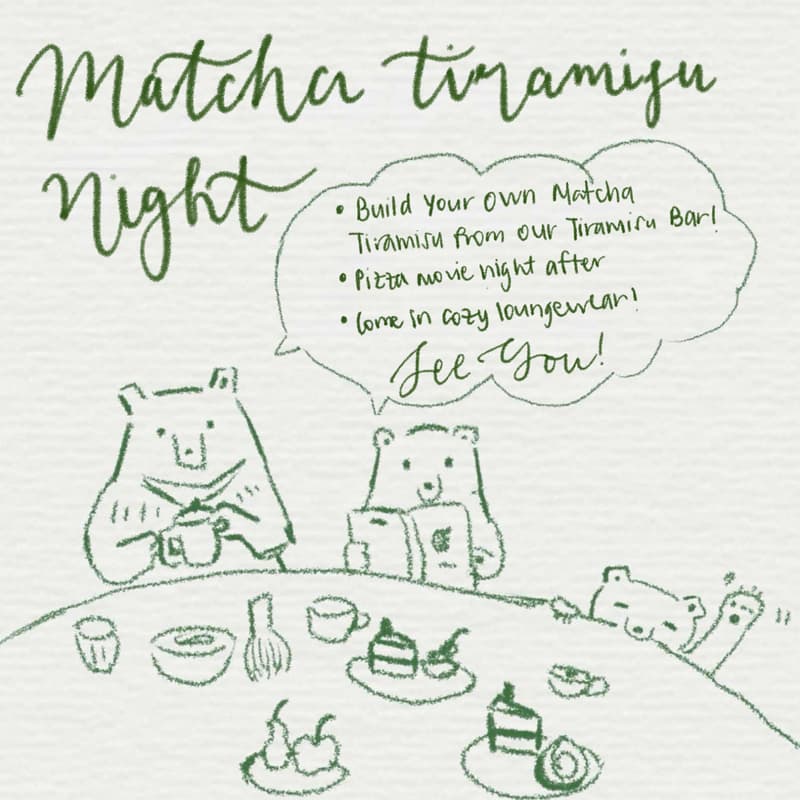 Matcha tiramisu
Night
• Build Your Own Matcha
Tiramisu from our Tiramisu Bar!
• Pizza movie night after
• Come in cozy loungewear!
See You!